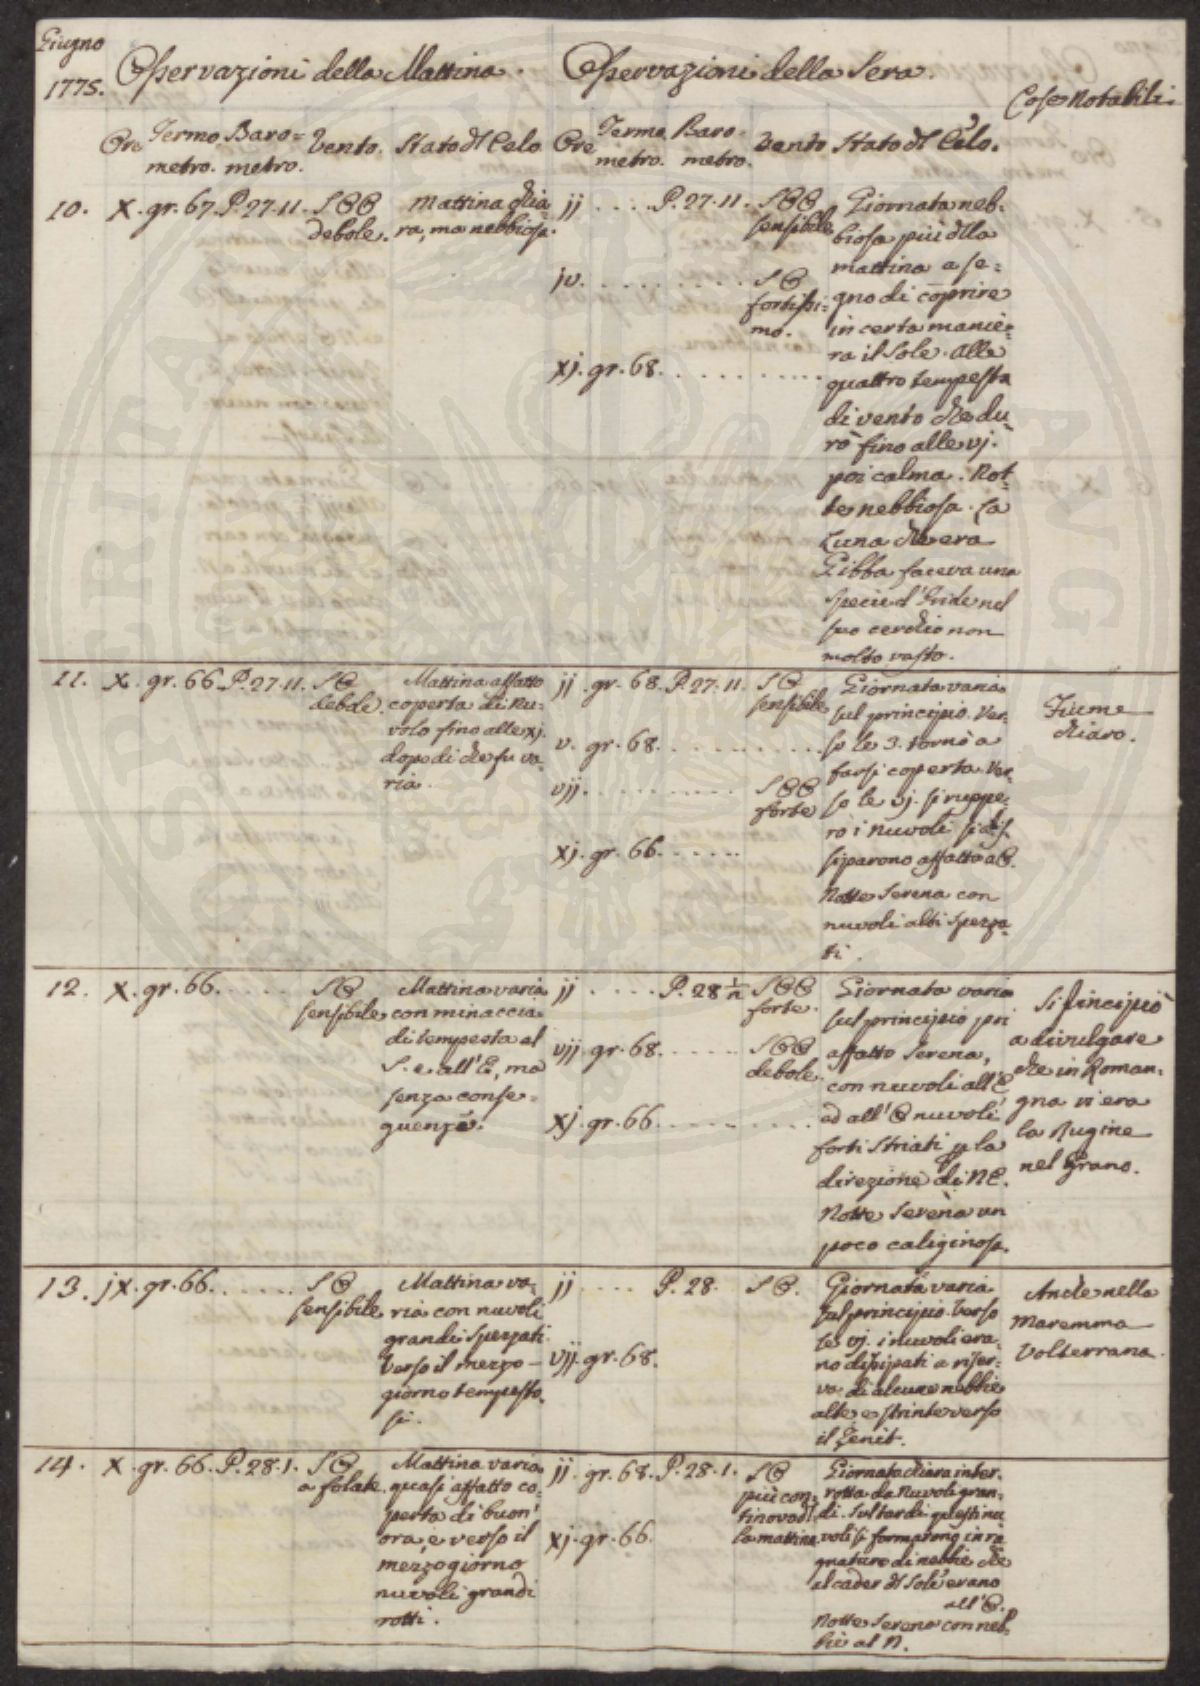 Giugno
1775.
Osservazioni della Mattina.
Osservazioni della Sera.
Cose Notabili.
Ore Termo Baro= Vento. Stato dl Celo
metro. metro.
Ore Termo Baro- Vento Stato dl Celo.
metro. metro.
10. X. gr. 67. P. 27. 11. S
debole.
Mattina chia
ra, ma nebbiosa.
jj . . . . P. 27. 11. S
sensibile
jv. . . . . . . . . . S
fortissi=
mo.
xj. gr. 68. . . . . . . . . .
Giornata neb=
biosa più dlla
mattina a se=
gno di coprire
in certa manie=
ra il Sole. Alle
quattro tempesta
di vento che du
rò fino alle vj.
poi calma. Not=
te nebbiosa. La
Luna che era
Gibba faceva una
specie d'Iride nel
suo cerchio non
molto vasto.
11. X. gr. 66. P. 27. 11. S
debole.
Mattina affatto
coperta di Nu=
volo fino alle xj.
dopo di che fu va=
ria.
jj. gr. 68. P. 27. 11. S
sensibile
v. gr. 68. . . . . . . . . .
vjj. . . . . . . . . . S
forte
xj. gr. 66. . . . . . .
Giornata varia
sul principio. Ver=
so le 3. tornò a
farsi coperta. Ver=
so le vj. si ruppe=
ro i nuvoli si dis=
siparono affatto a
Notte Serena con
nuvoli alti spezza=
ti.
Fiume
chiaro.
12. X. gr. 66. . . . . . S
sensibile
Mattina varia
con minaccia=
di tempesta al
S. e all'E, ma
senza conse=
guenze.
jj . . . . P. 28 S
forte.
vjj. gr. 68. . . . . . S
debole.
xj. gr. 66. . . . . . . . . .
Giornata varia
sul principio poi
affatto Serena,
con nuvoli all'E
ed all' nuvoli
forti striati p la
direzione di NE.
Notte Serena un
poco caliginosa.
Si principiò
a divulgare
che in Roman=
gna vi era
la Rugine
nel Grano.
13. jX. gr. 66. . . . . . S
sensibile
Mattina va=
ria con nuvoli
grandi spezzati.
Verso il mezzo-
giorno tempesto
si.
jj . . . . P. 28. S
vjj. gr. 68.
Giornata varia
sul principio. Verso
le vj. i nuvoli era=
no dissipati a riser=
va di alcune nebbie
alte e strinte verso
il Zenit.
Andò nella
Maremma
Volterrana.
14. X. gr. 66. P. 28. 1. S
a folate.
Mattina varia
quasi affatto co=
perta di buon'
ora, e verso il
mezzogiorno
nuvoli grandi
rotti.
jj. gr. 68. P. 28. 1. S
più con=
tinovo dl
la mattina
xj. gr. 66.
Giornata chiara inter=
rotta da Nuvoli gran=
di. Sul tardi questi nu
voli si formarono in ra
gnature di nebbie che
al cader dl Sole erano
all'
Notte Serena con neb=
bie al N.